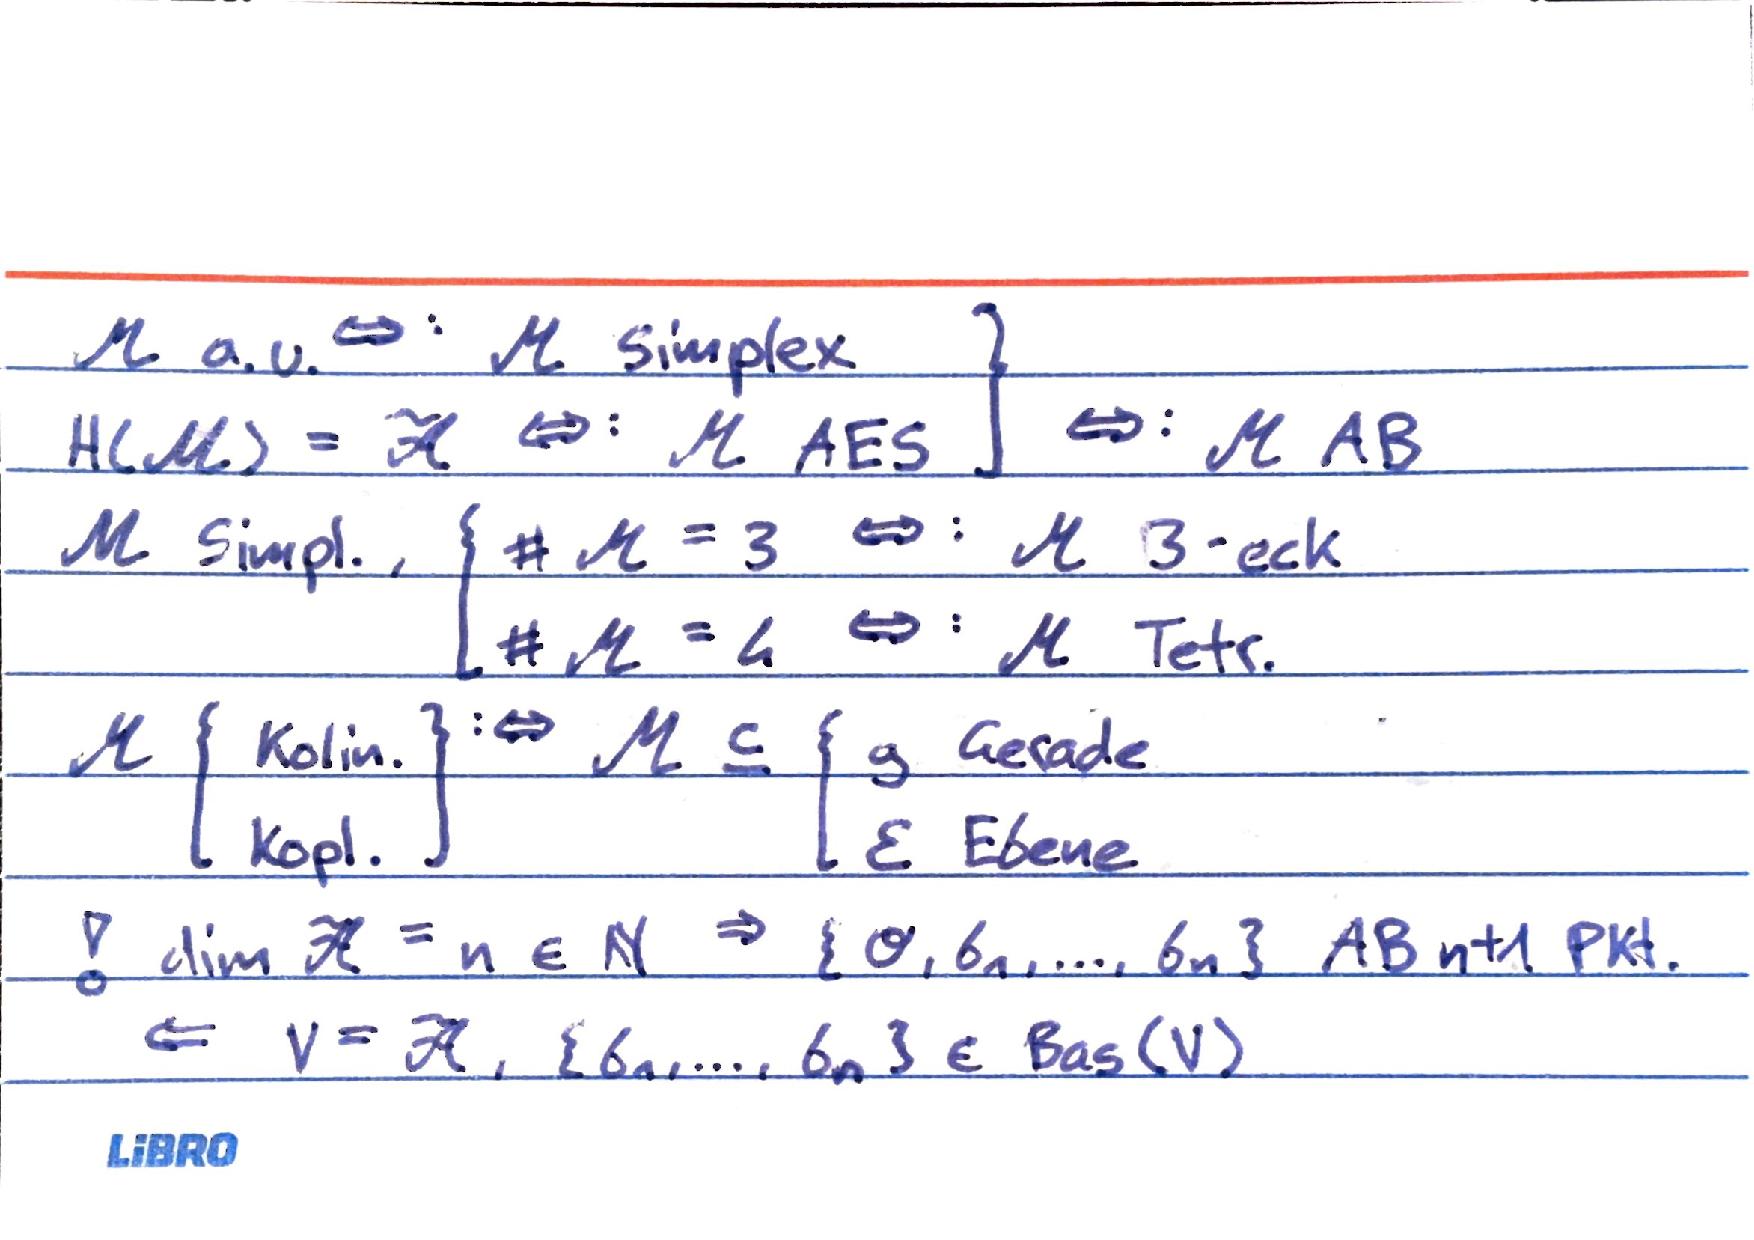 M a.u. ⇔: M Simplex } ⇔: M AB
H(M) = ℋ ⇔: M AES
M Simpl., { # M = 3 ⇔: M 3-eck
# M = 4 ⇔: M Tetr.
M { Kolin. } :⇔ M ⊆ { g Gerade
Kopl. ε Ebene
! dim ℋ = n ∈ ℕ ⇒ {σ, b₁, ..., bₙ} AB n+1 Pkt.
⇐ V = ℋ, {b₁, ..., bₙ} ∈ Bas(V)
LiBRO